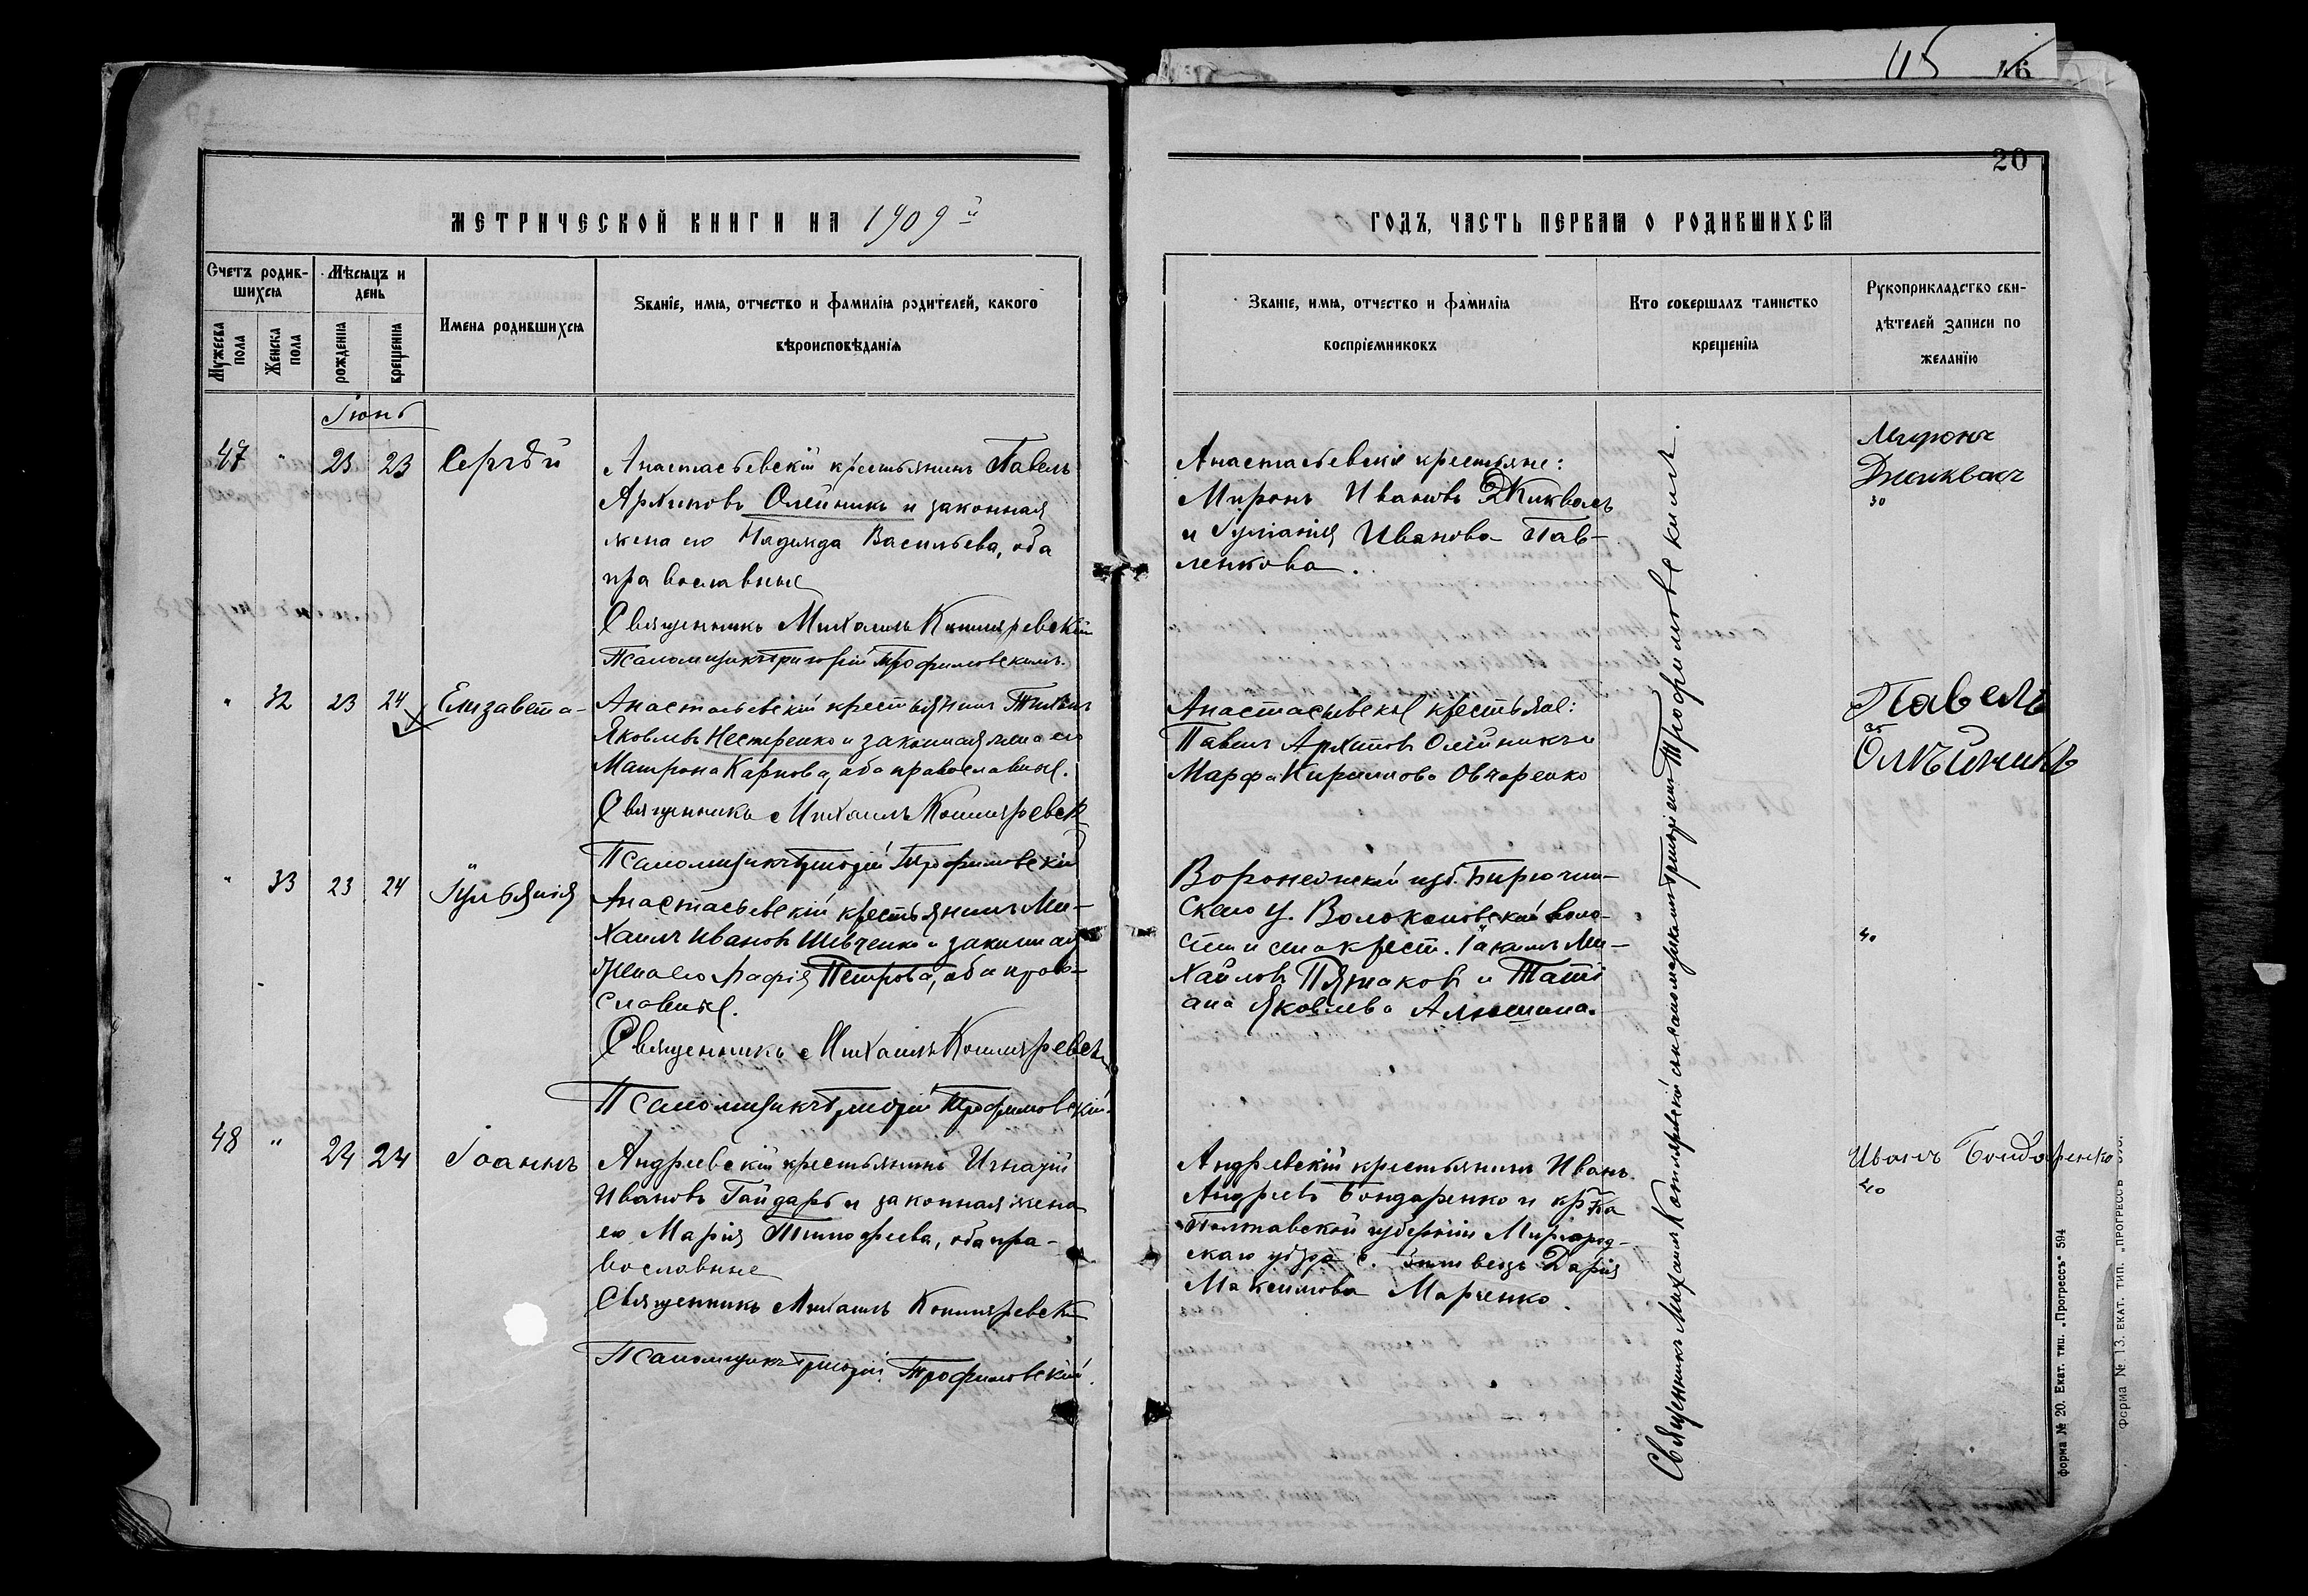 115 46
20
МЕТРИЧЕСКОЙ КНИГИ НА 1909й
ГОДЪ, ЧАСТЬ ПЕРВАЯ О РОДИВШИХСЯ
Счетъ родившихся
Мужеска пола
Женска пола
Мѣсяцъ и день
рожденія
крещенія
Имена родившихся
Званіе, имя, отчество и фамилія родителей, какого
вѣроисповѣданія
Званіе, имя, отчество и фамилія
воспріемниковъ
Кто совершалъ таинство
крещенія
Рукоприкладство сви-
дѣтелей записи по
желанію
Іюнь
47 " 23 23 Сергѣй
Анастасьевскій крестьянинъ Павелъ
Архиповъ Олейникъ и законная
жена его Надежда Васильева, оба
православные
Священникъ Михаилъ Котляревскій
Псаломщикъ Григорій Трофимовскій.
Анастасьевскіе крестьяне:
Миронъ Ивановъ Джикваль
и Іуліанія Иванова Пав-
ленкова.
Миронъ
30
" 32 23 24 Елизавета
Анастасьевскій крестьянинъ
Яковлевъ Нестеренко и законная жена его
Матрона Карпова, оба православные.
Священникъ Михаилъ Котляревск
Псаломщикъ Григорій Трофимовскій
Анастасьевскіе крестьяне:
Павелъ Архиповъ Олейникъ и
Марфа Кириллова Овчаренко
Павелъ
Олѣйникъ
" 33 23 24 Іульянія
Анастасьевскій крестьянинъ Ми-
хаилъ Ивановъ Шевченко и законная
жена его Петрова, оба право-
славные.
Священникъ Михаилъ Котляревск
Псаломщикъ Григорій Трофимовскій.
Воронежской губ. Бирючин-
скаго у. Волоконовской воло-
сти и села крест. Іоакимъ Ми-
хайловъ Пятаковъ и Татi
ана Яковлева Алешина.
40
48 " 24 24 Іоаннъ
Андреевскій крестьянинъ Игнатій
Ивановъ Гайдарь и законная жена
его Марія Тимофеева, оба пра-
вославные
Священникъ Михаилъ Котляревскій
Псаломщикъ Григорій Трофимовскій.
Андреевскій крестьянинъ Иванъ
Андреевъ Бондаренко и кр-ка
Полтавской губерніи Миргород-
скаго уѣзда с. Дарія
Максимова Марченко.
Иванъ Бондаренко
40
Священникъ Михаилъ Котляревскій съ псаломщикомъ Григоріемъ Трофимовскимъ.
Форма № 20. Екат. тип. „Прогрессъ" 594
Форма № 13. ЕКАТ. ТИП. „ПРОГРЕССЪ"